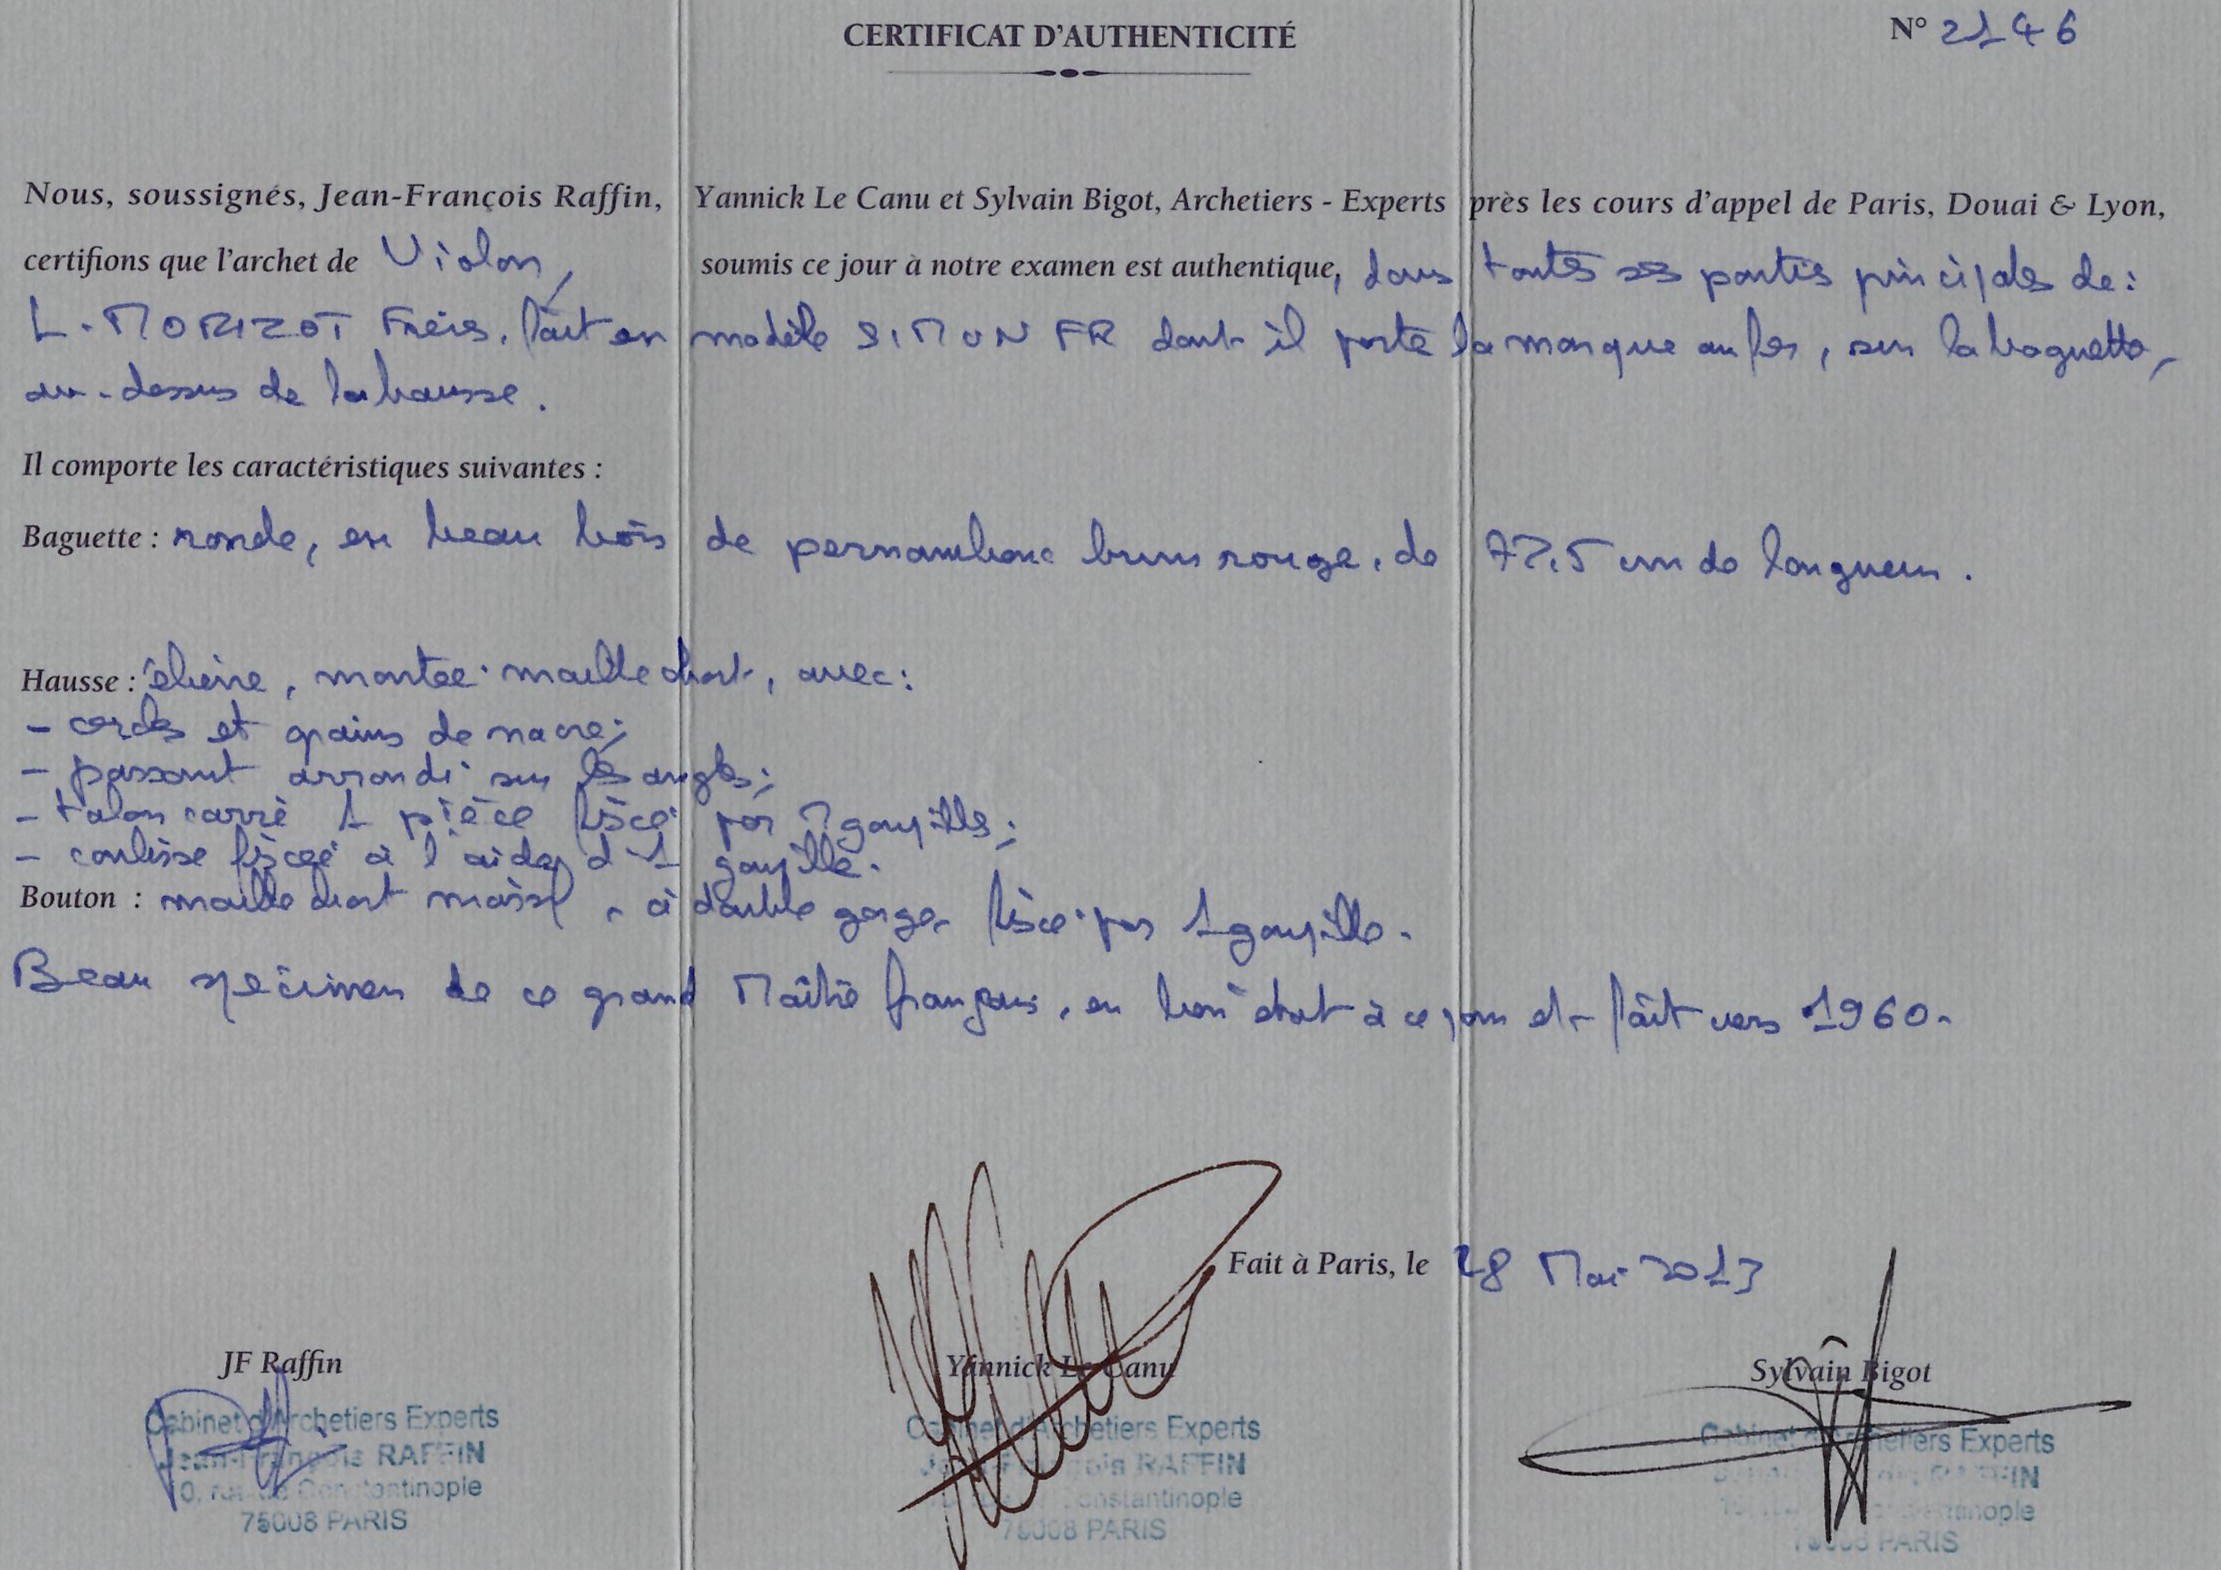 CERTIFICAT D'AUTHENTICITÉ
N° 2146
Nous, soussignés, Jean-François Raffin, Yannick Le Canu et Sylvain Bigot, Archetiers - Experts près les cours d'appel de Paris, Douai & Lyon,
certifions que l'archet de Violon, soumis ce jour à notre examen est authentique, dans toutes ses parties principales de :
L. MORIZOT Frères, fait en modèle SIMON FR dont il porte la marque au fer, sur la baguette,
au-dessus de la hausse.
Il comporte les caractéristiques suivantes :
Baguette : ronde, en beau bois de pernambouc brun rouge, de 72,5 cm de longueur.
Hausse : ébène, montée maillechort, avec :
- cercles et grains de nacre ;
- passant arrondi sur les angles ;
- talon carré 1 pièce fixée par 2 goupilles ;
- coulisse fixée à l'aide d'1 goupille.
Bouton : maillechort massif, à double gorge, fixée par 1 goupille.
Beau spécimen de ce grand Maître français, en bon état à ce jour et fait vers 1960.
Fait à Paris, le 28 Mai 2013
JF Raffin
Yannick Le Canu
Sylvain Bigot
Cabinet d'Archetiers Experts
Jean-François RAFFIN
rue de Constantinople
75008 PARIS
Cabinet d'Archetiers Experts
Jean-François RAFFIN
Constantinople
75008 PARIS
Cabinet d'Archetiers Experts
RAFFIN
Constantinople
75008 PARIS